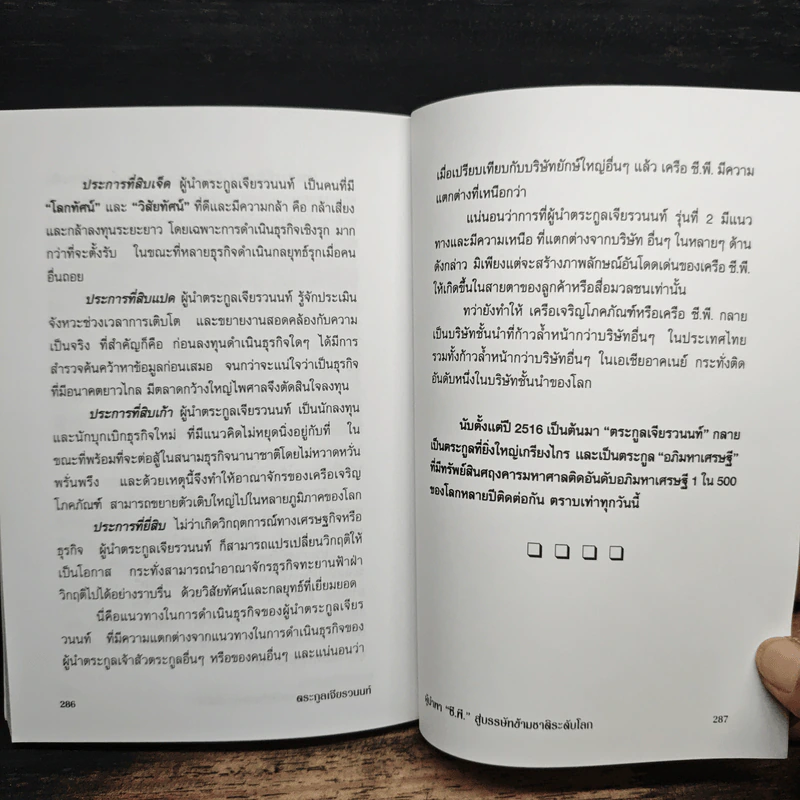 ประการที่สิบเจ็ด ผู้นำตระกูลเจียรวนนท์ เป็นคนที่มี
“โลกทัศน์” และ “วิสัยทัศน์” ที่ดีและมีความกล้า คือ กล้าเสี่ยง
และกล้าลงทุนระยะยาว โดยเฉพาะการดำเนินธุรกิจเชิงรุก มาก
กว่าที่จะตั้งรับ ในขณะที่หลายธุรกิจดำเนินกลยุทธ์รุกเมื่อคน
อื่นถอย
ประการที่สิบแปด ผู้นำตระกูลเจียรวนนท์ รู้จักประเมิน
จังหวะช่วงเวลาการเติบโต และขยายงานสอดคล้องกับความ
เป็นจริง ที่สำคัญก็คือ ก่อนลงทุนดำเนินธุรกิจใดๆ ได้มีการ
สำรวจค้นคว้าหาข้อมูลก่อนเสมอ จนกว่าจะแน่ใจว่าเป็นธุรกิจ
ที่มีอนาคตยาวไกล มีตลาดกว้างใหญ่ไพศาลจึงตัดสินใจลงทุน
ประการที่สิบเก้า ผู้นำตระกูลเจียรวนนท์ เป็นนักลงทุน
และนักบุกเบิกธุรกิจใหม่ ที่มีแนวคิดไม่หยุดนิ่งอยู่กับที่ ใน
ขณะที่พร้อมที่จะต่อสู้ในสนามธุรกิจนานาชาติโดยไม่หวาดหวั่น
พรั่นพรึง และด้วยเหตุนี้จึงทำให้อาณาจักรของเครือเจริญ
โภคภัณฑ์ สามารถขยายตัวเติบใหญ่ไปในหลายภูมิภาคของโลก
ประการที่ยี่สิบ ไม่ว่าเกิดวิกฤตการณ์ทางเศรษฐกิจหรือ
ธุรกิจ ผู้นำตระกูลเจียรวนนท์ ก็สามารถแปรเปลี่ยนวิกฤติให้
เป็นโอกาส กระทั่งสามารถนำอาณาจักรธุรกิจทะยานฟ้าฝ่า
วิกฤติไปได้อย่างราบรื่น ด้วยวิสัยทัศน์และกลยุทธ์ที่เยี่ยมยอด
นี่คือแนวทางในการดำเนินธุรกิจของผู้นำตระกูลเจียร
วนนท์ ที่มีความแตกต่างจากแนวทางในการดำเนินธุรกิจของ
ผู้นำตระกูลเจ้าสัวตระกูลอื่นๆ หรือของคนอื่นๆ และแน่นอนว่า
286 ตระกูลเจียรวนนท์
เมื่อเปรียบเทียบกับบริษัทยักษ์ใหญ่อื่นๆ แล้ว เครือ ซี.พี. มีความ
แตกต่างที่เหนือกว่า
แน่นอนว่าการที่ผู้นำตระกูลเจียรวนนท์ รุ่นที่ 2 มีแนว
ทางและมีความเหนือ ที่แตกต่างจากบริษัท อื่นๆ ในหลายๆ ด้าน
ดังกล่าว มิเพียงแต่จะสร้างภาพลักษณ์อันโดดเด่นของเครือ ซี.พี.
ให้เกิดขึ้นในสายตาของลูกค้าหรือสื่อมวลชนเท่านั้น
ทว่ายังทำให้ เครือเจริญโภคภัณฑ์หรือเครือ ซี.พี. กลาย
เป็นบริษัทชั้นนำที่ก้าวล้ำหน้ากว่าบริษัทอื่นๆ ในประเทศไทย
รวมทั้งก้าวล้ำหน้ากว่าบริษัทอื่นๆ ในเอเชียอาคเนย์ กระทั่งติด
อันดับหนึ่งในบริษัทชั้นนำของโลก
นับตั้งแต่ปี 2516 เป็นต้นมา “ตระกูลเจียรวนนท์” กลาย
เป็นตระกูลที่ยิ่งใหญ่เกรียงไกร และเป็นตระกูล “อภิมหาเศรษฐี”
ที่มีทรัพย์สินศฤงคารมหาศาลติดอันดับอภิมหาเศรษฐี 1 ใน 500
ของโลกหลายปีติดต่อกัน ตราบเท่าทุกวันนี้
“ซี.พี.” สู่บรรษัทข้ามชาติระดับโลก 287